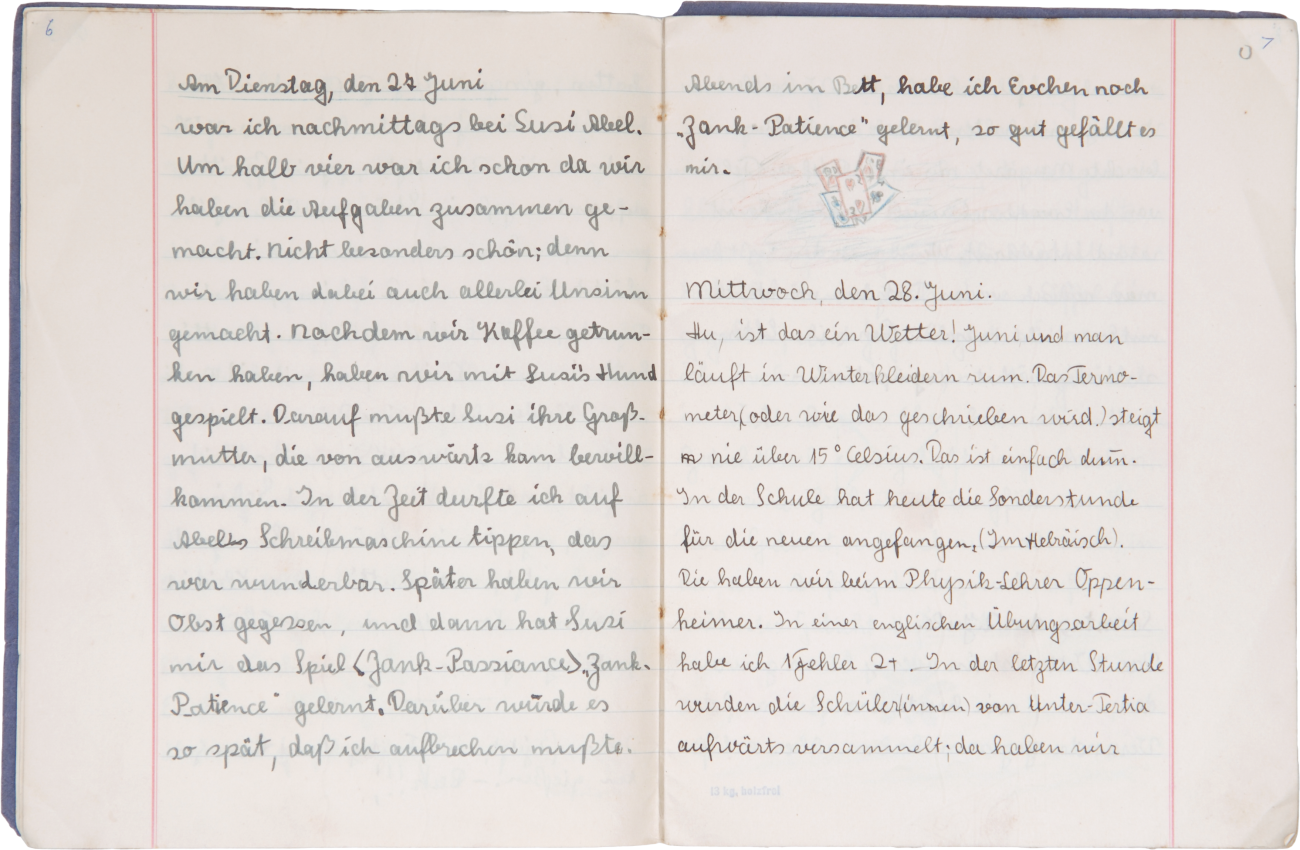 6
Am Dienstag, den 27 Juni
war ich nachmittags bei Susi Abel.
Um halb vier war ich schon da wir
haben die Aufgaben zusammen ge-
macht. Nicht besonders schön; denn
wir haben dabei auch allerlei Unsinn
gemacht. Nachdem wir Kaffee getrun-
ken haben, haben wir mit Susi's Hund
gespielt. Darauf mußte Susi ihre Groß-
mutter, die von auswärts kam bewill-
kommen. In der Zeit durfte ich auf
Abels Schreibmaschine tippen, das
war wunderbar. Später haben wir
Obst gegessen, und dann hat Susi
mir das Spiel (Zank-Passiance) „Zank-
Patience" gelernt. Darüber wurde es
so spät, daß ich aufbrechen mußte.
7
Abends im Bett, habe ich Evchen noch
„Zank-Patience" gelernt, so gut gefällt es
mir.
Mittwoch, den 28. Juni.
Hu, ist das ein Wetter! Juni und man
läuft in Winterkleidern rum. Das Termo-
meter (oder wie das geschrieben wird.) steigt
nie über 15° Celsius. Das ist einfach dum̅.
In der Schule hat heute die Sonderstunde
für die neuen angefangen. (Im Hebräisch).
Die haben wir beim Physik-Lehrer Oppen-
heimer. In einer englischen Übungsarbeit
habe ich 1 Fehler 2+. In der letzten Stunde
wurden die Schüler(innen) von Unter-Tertia
aufwärts versammelt; da haben wir